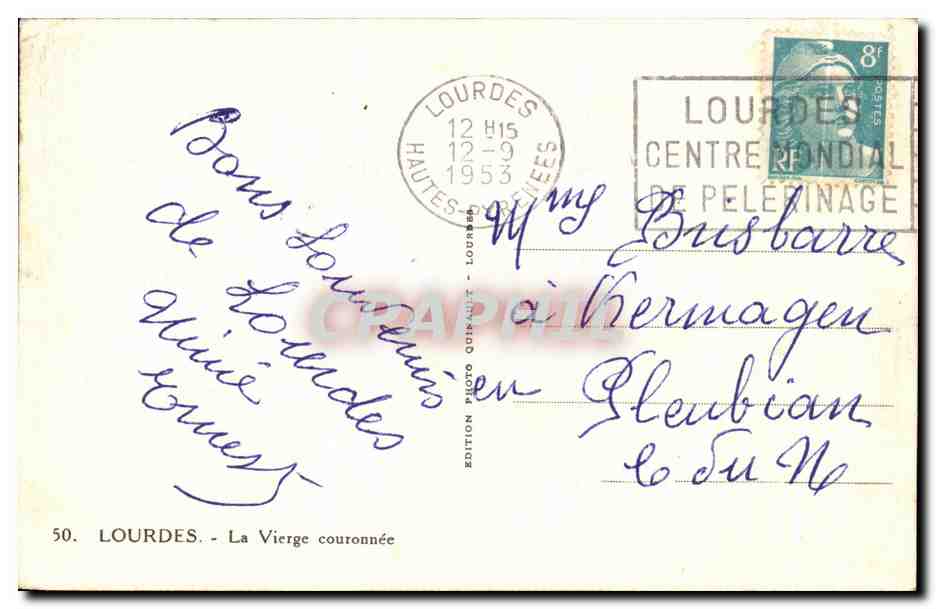 Bons Souvenirs
de Lourdes
Mimie
Ernest
LOURDES
12 H15
12-9
1953
HAUTES-PYRENEES
LOURDES
CENTRE MONDIAL
DE PELERINAGE
8f
POSTES
RF
Mme Brisbarre
à Kermagen
en Pleubian
C du N
EDITION PHOTO QUINAULT - LOURDES
CPAPHIL
50. LOURDES. - La Vierge couronnée